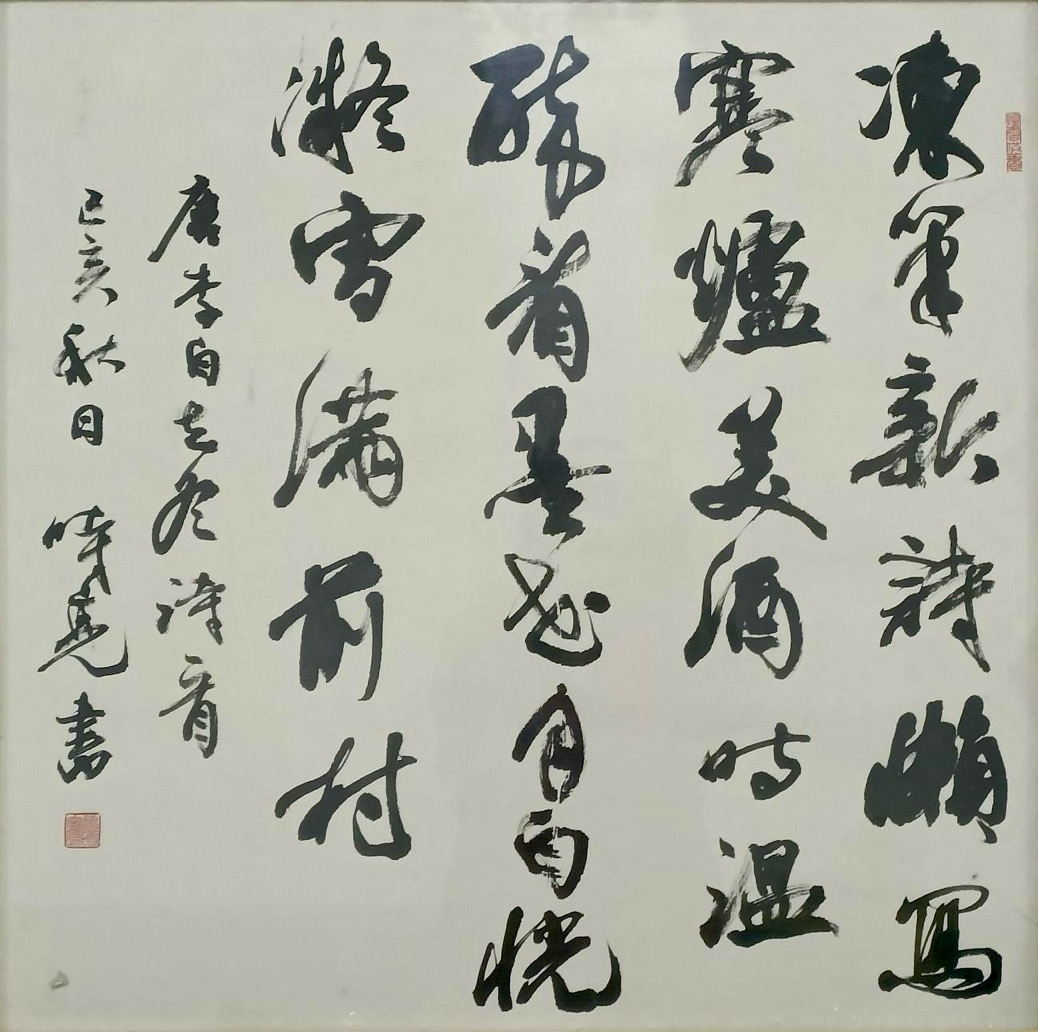 凍筆新詩懶寫
寒爐美酒時温
醉看墨花月白恍
凝雪滿前村
唐李白立冬詩首
己亥秋日 時堯書